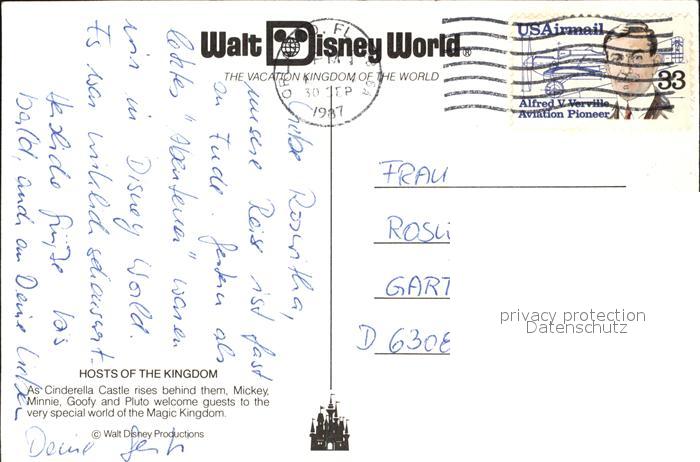 Walt Disney World®
THE VACATION KINGDOM OF THE WORLD
FL
30 SEP
1987
USAirmail
33
Alfred V. Verville
Aviation Pioneer
Liebe Roswitha,
unsere Reise ist fast
zu Ende. Gestern als
letztes "Abenteuer" waren
wir in Disney World.
Es war wirklich sehenswert.
Herzliche Grüße bis
bald, auch an Deine Lieben
Deine
FRAU
ROSW
GART
D 6308
privacy protection
Datenschutz
HOSTS OF THE KINGDOM
As Cinderella Castle rises behind them, Mickey,
Minnie, Goofy and Pluto welcome guests to the
very special world of the Magic Kingdom.
© Walt Disney Productions